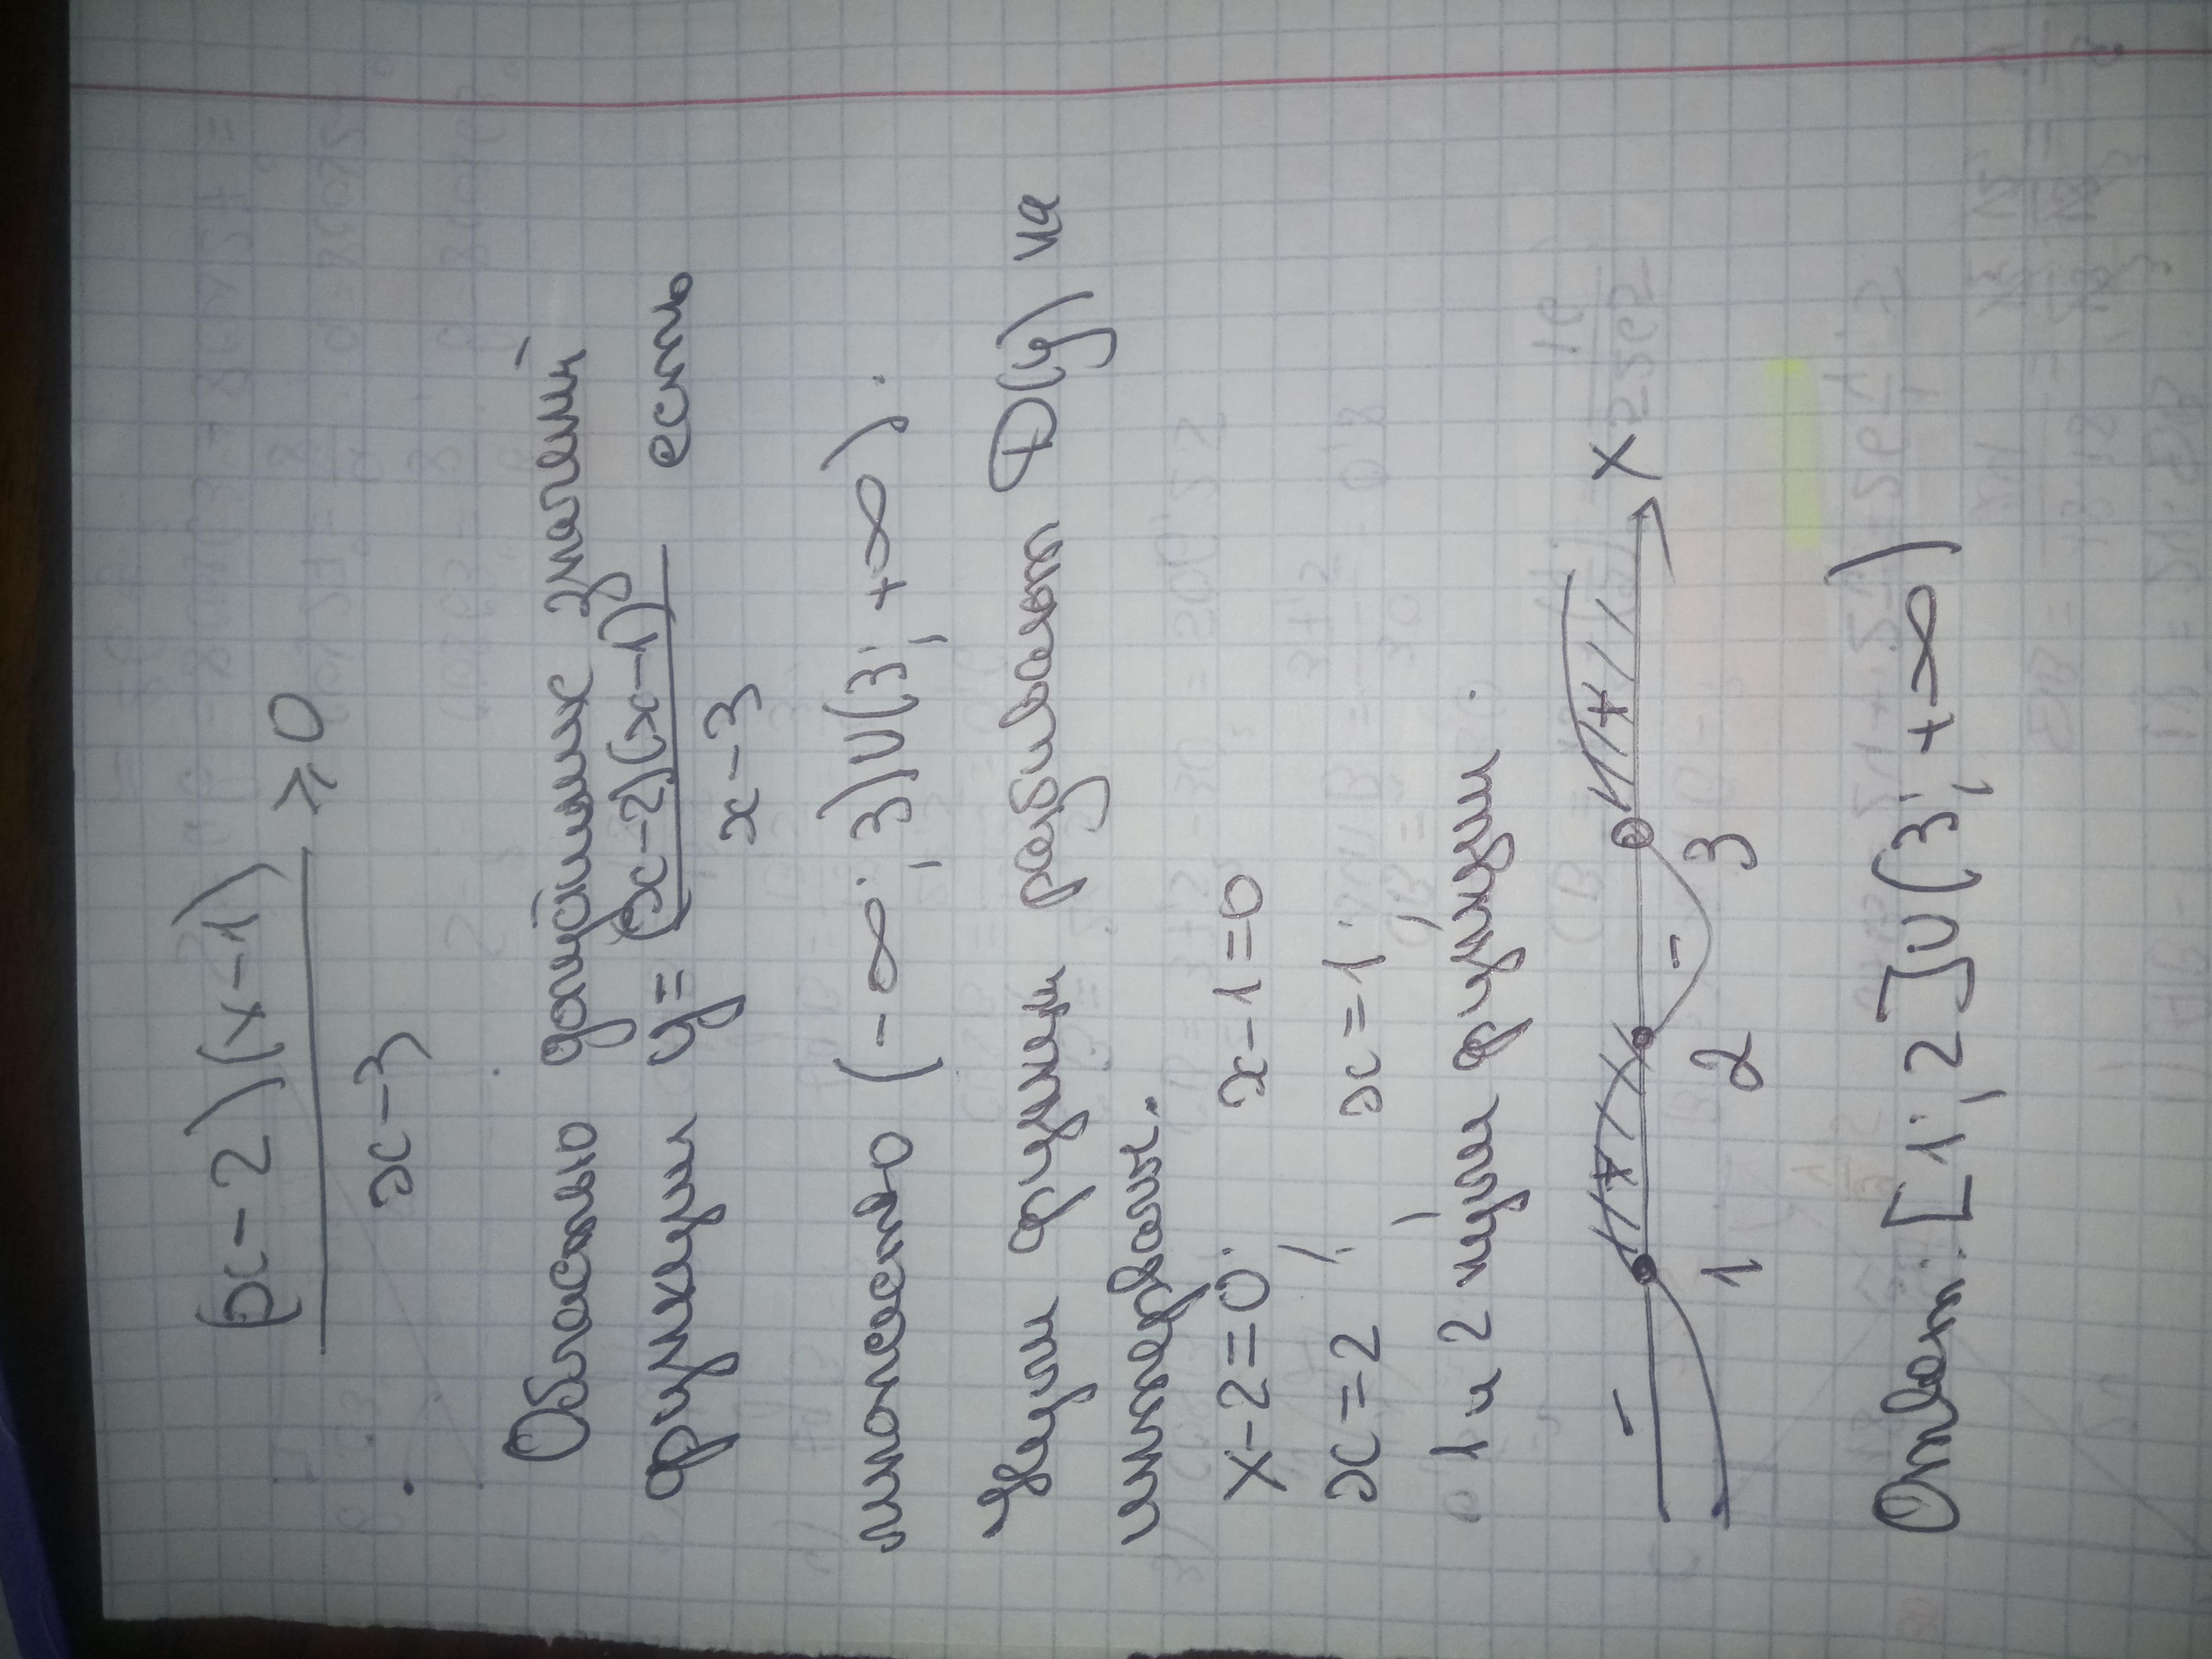 (x-2)(x-1)
x-3
≥0
Областью допустимых значений
функции y= (x-2)(x-1) есть
x-3
множество (-∞; 3)∪(3; +∞).
Нули функции разбивают D(y) на
интервалов.
x-2=0; x-1=0
x=2 ; x=1;
1 и 2 нули функции.
- + - + x
1 2 3
Ответ: [1; 2]∪(3; +∞)